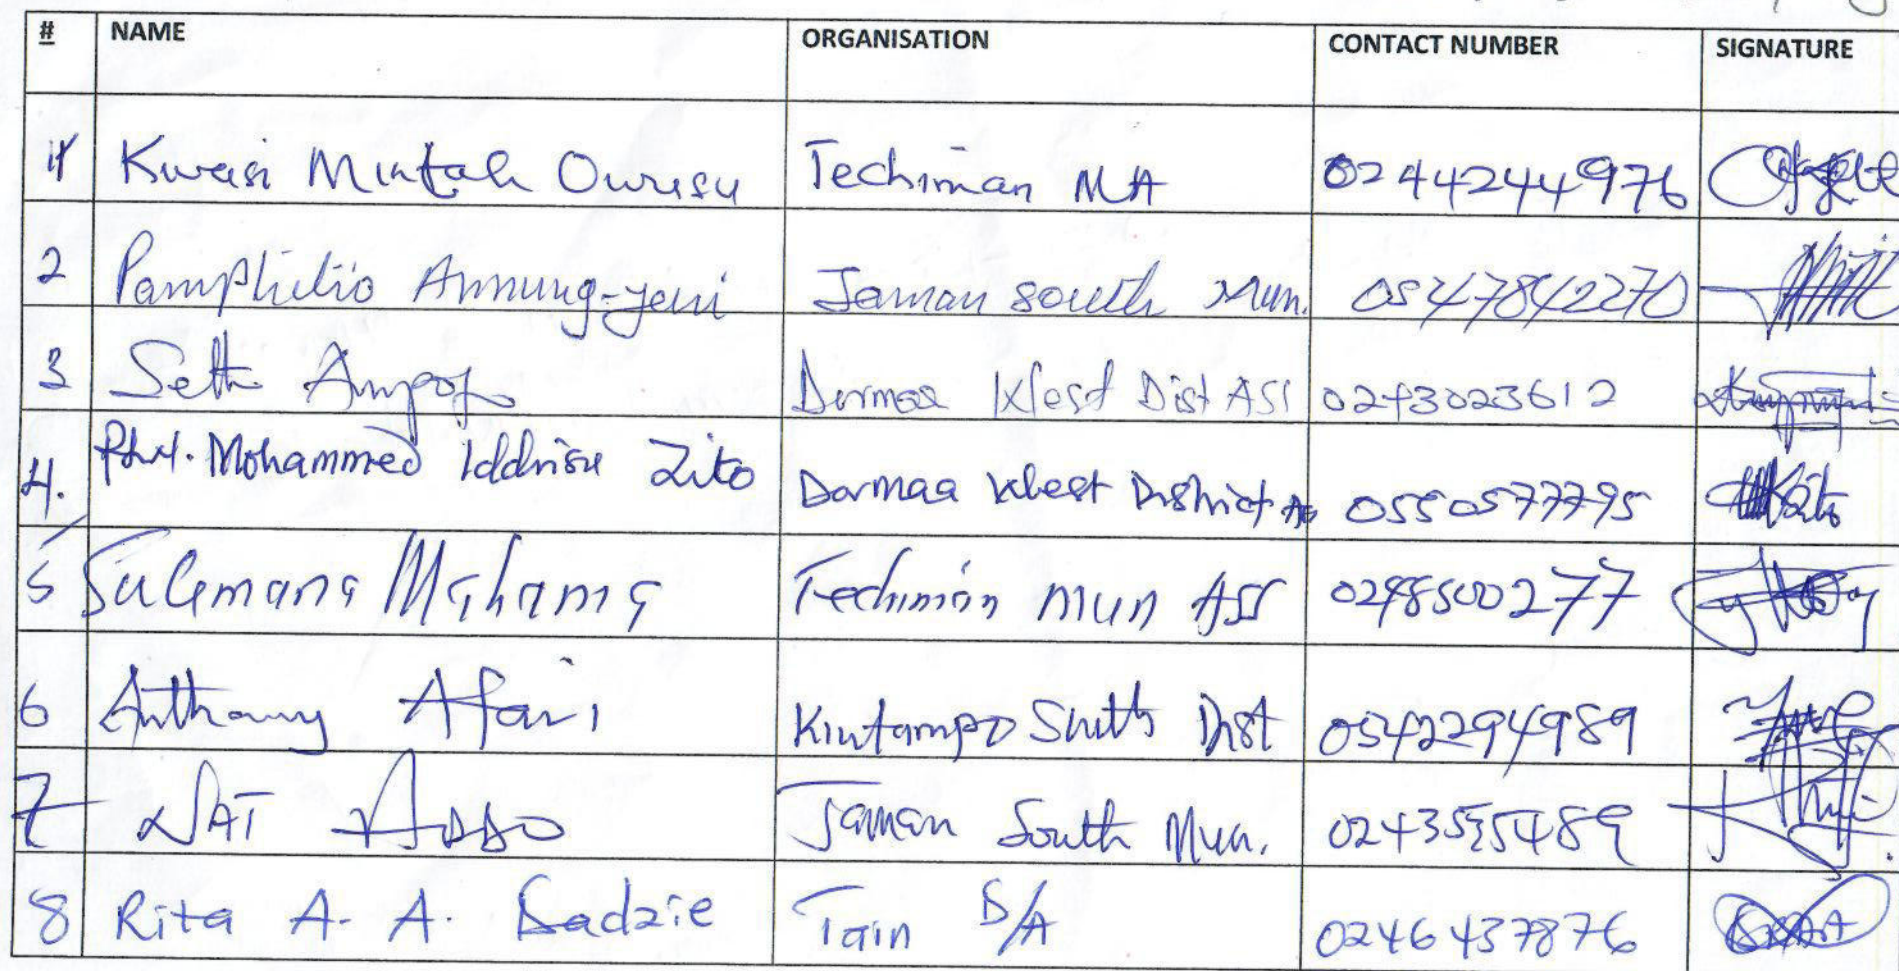 # NAME ORGANISATION CONTACT NUMBER SIGNATURE
1 Kwasi Mintah Owusu Techiman MA 0244244976
2 Jaman South Mun. 0547842270
3 Seth Ampofo Dormaa West Dist Ass 0243023612
4. Mohammed Iddrisu Zito Dormaa West District 0550577795
5 Sulemana Mahama Techiman Mun Ass 0248500277
6 Anthony Afari Kintampo South Dist 0542294989
7 NAT ADDO Jaman South Mun. 0243555489
8 Rita A. A. Dadzie Tain D/A 0246437876